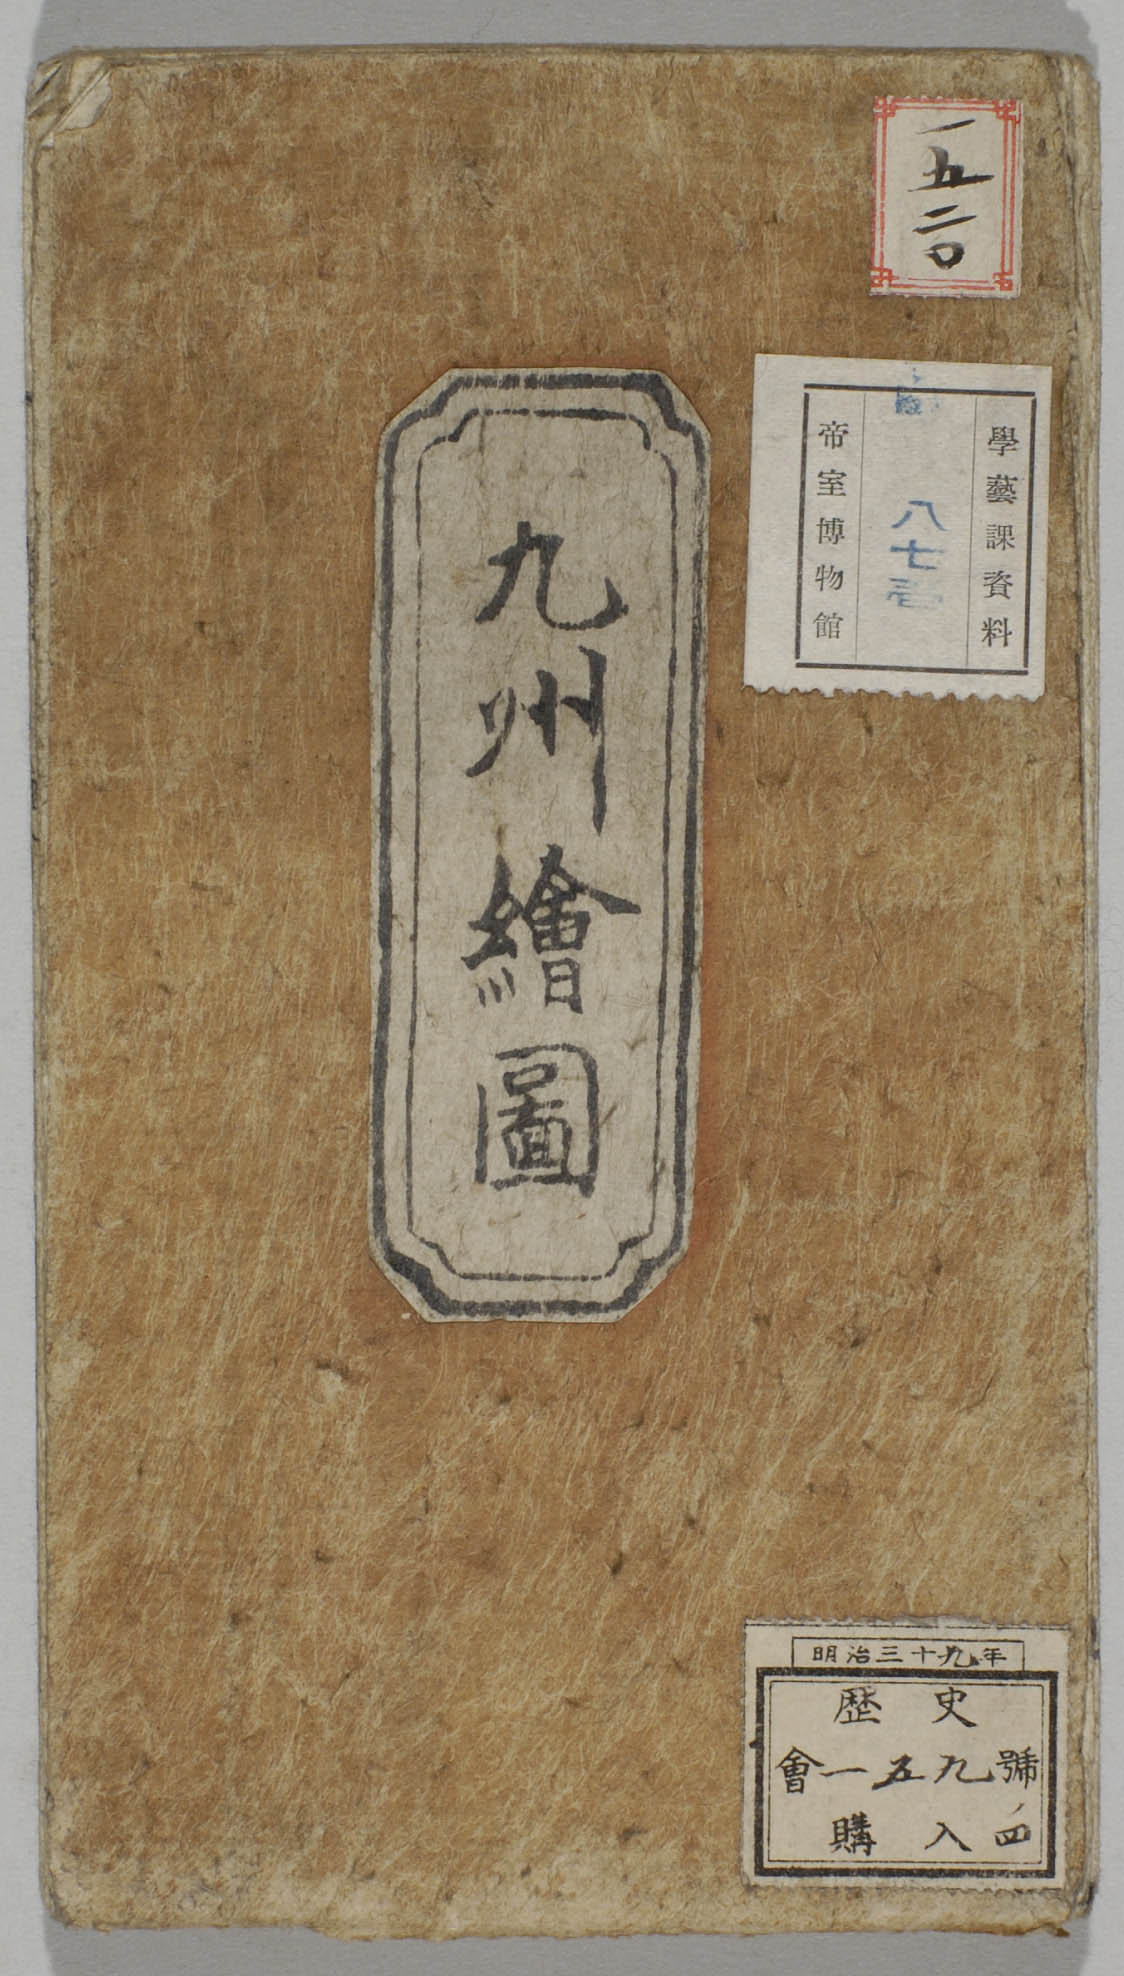 一五二〇
學藝課資料
八七壱
帝室博物館
九州繪圖
明治三十九年
歴史
會一五九號ノ四
購入